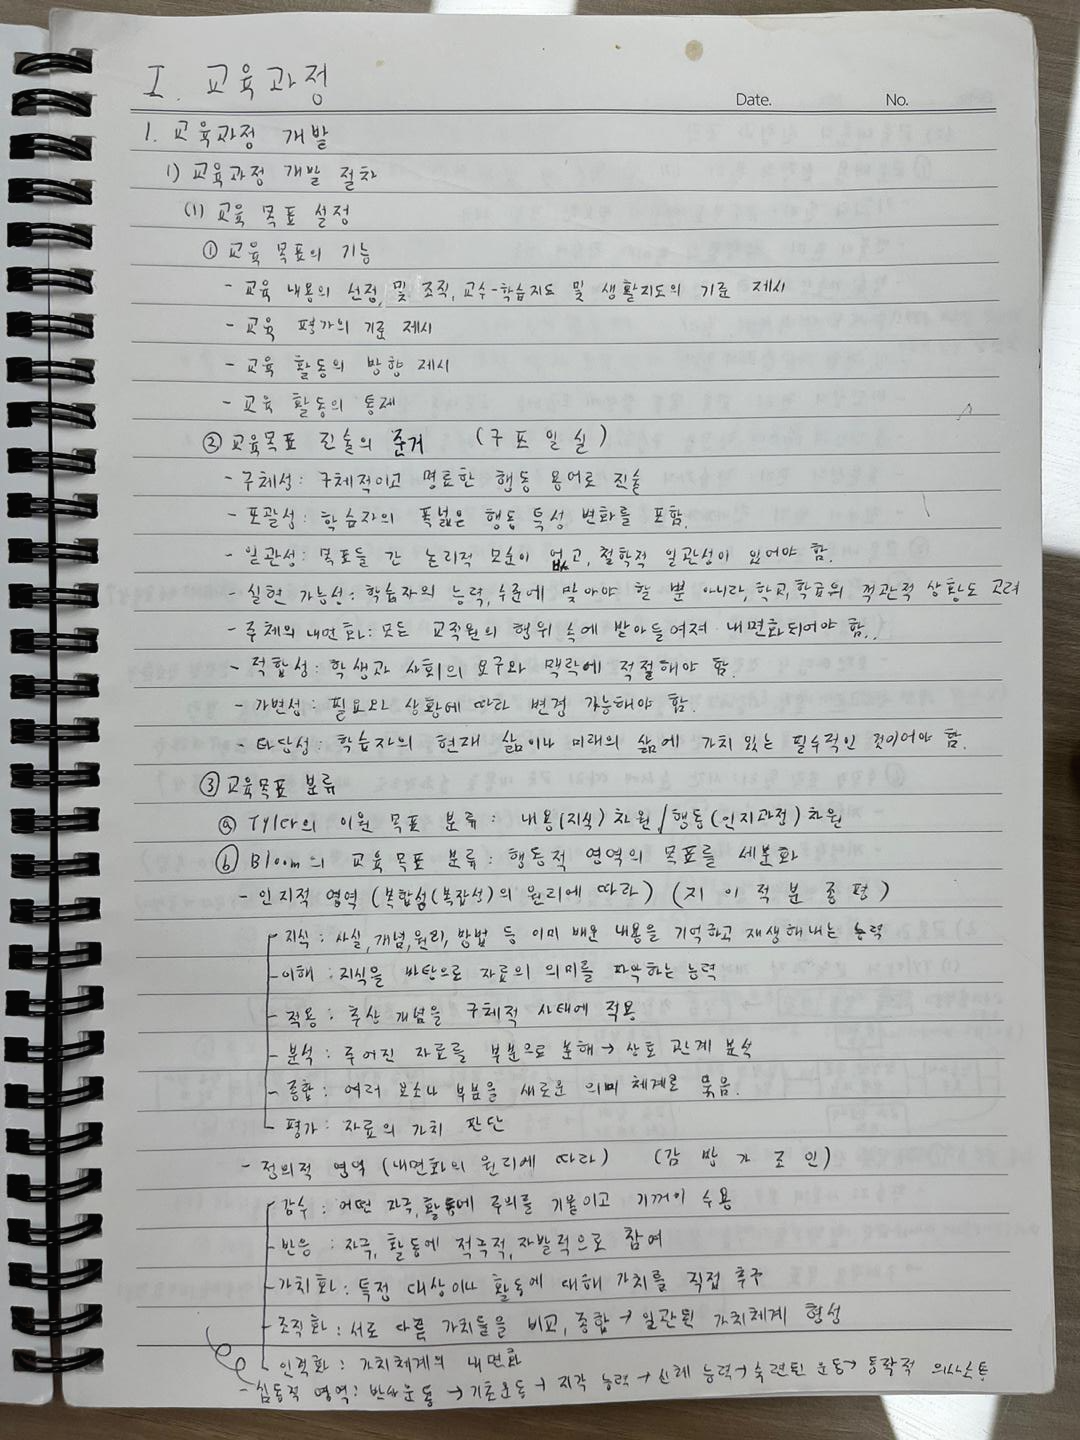 I. 교육과정
Date. No.
1. 교육과정 개발
1) 교육과정 개발 절차
(1) 교육 목표 설정
① 교육 목표의 기능
- 교육 내용의 선정, 및 조직, 교수-학습지도 및 생활지도의 기준 제시
- 교육 평가의 기준 제시
- 교육 활동의 방향 제시
- 교육 활동의 통제
② 교육목표 진술의 준거 (구 포 일 실)
- 구체성: 구체적이고 명료한 행동 용어로 진술
- 포괄성: 학습자의 폭넓은 행동 특성 변화를 포함.
- 일관성: 목표들 간 논리적 모순이 없고, 철학적 일관성이 있어야 함.
- 실현 가능성: 학습자의 능력, 수준에 맞아야 할 뿐 아니라, 학교, 학급의 객관적 상황도 고려
- 주체의 내면화: 모든 교직원의 행위 속에 받아들여져 내면화되어야 함.
- 적합성: 학생과 사회의 요구와 맥락에 적절해야 함.
- 가변성: 필요와 상황에 따라 변경 가능해야 함.
- 타당성: 학습자의 현재 삶이나 미래의 삶에 가치 있는 필수적인 것이어야 함.
③ 교육목표 분류
ⓐ Tyler의 이원 목표 분류: 내용(지식) 차원 / 행동(인지과정) 차원
ⓑ Bloom의 교육목표 분류: 행동적 영역의 목표를 세분화
- 인지적 영역 (복합성(복잡성)의 원리에 따라) (지 이 적 분 종 평)
- 지식: 사실, 개념, 원리, 방법 등 이미 배운 내용을 기억하고 재생해내는 능력
- 이해: 지식을 바탕으로 자료의 의미를 파악하는 능력
- 적용: 추상 개념을 구체적 사태에 적용
- 분석: 주어진 자료를 부분으로 분해 → 상호 관계 분석
- 종합: 여러 요소나 부분을 새로운 의미 체계로 묶음.
- 평가: 자료의 가치 판단
- 정의적 영역 (내면화의 원리에 따라) (감 반 가 조 인)
- 감수: 어떤 자극, 활동에 주의를 기울이고 기꺼이 수용
- 반응: 자극, 활동에 적극적, 자발적으로 참여
- 가치화: 특정 대상이나 활동에 대해 가치를 직접 추구
- 조직화: 서로 다른 가치들을 비교, 종합 → 일관된 가치체계 형성
- 인격화: 가치체계의 내면화
- 심동적 영역: 반사운동 → 기초운동 → 지각 능력 → 신체 능력 → 숙련된 운동 → 동작적 의사소통